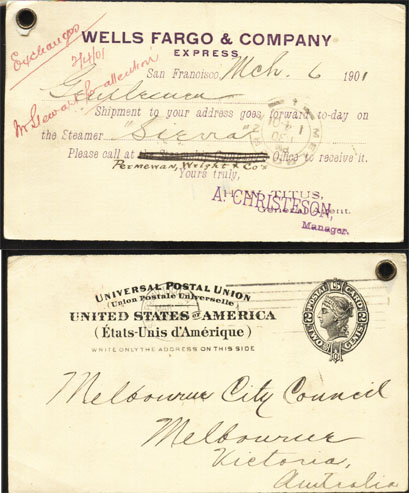 WELLS FARGO & COMPANY
EXPRESS.
Exchanges
2/4/01
San Francisco, Mch. 6 1901
Gentlemen
Mr Stewart
Shipment to your address goes forward to-day on
the Steamer "Sierra"
Please call at Office to receive it.
Permewan, Wright & Co's
Yours truly,
TITUS,
A. CHRISTESON,
General Agent.
Manager.
UNIVERSAL POSTAL UNION
(Union Postale Universelle)
UNITED STATES OF AMERICA
(États-Unis d'Amérique)
WRITE ONLY THE ADDRESS ON THIS SIDE
POSTAL CARD
TWO CENTS
Melbourne City Council
Melbourne
Victoria,
Australia